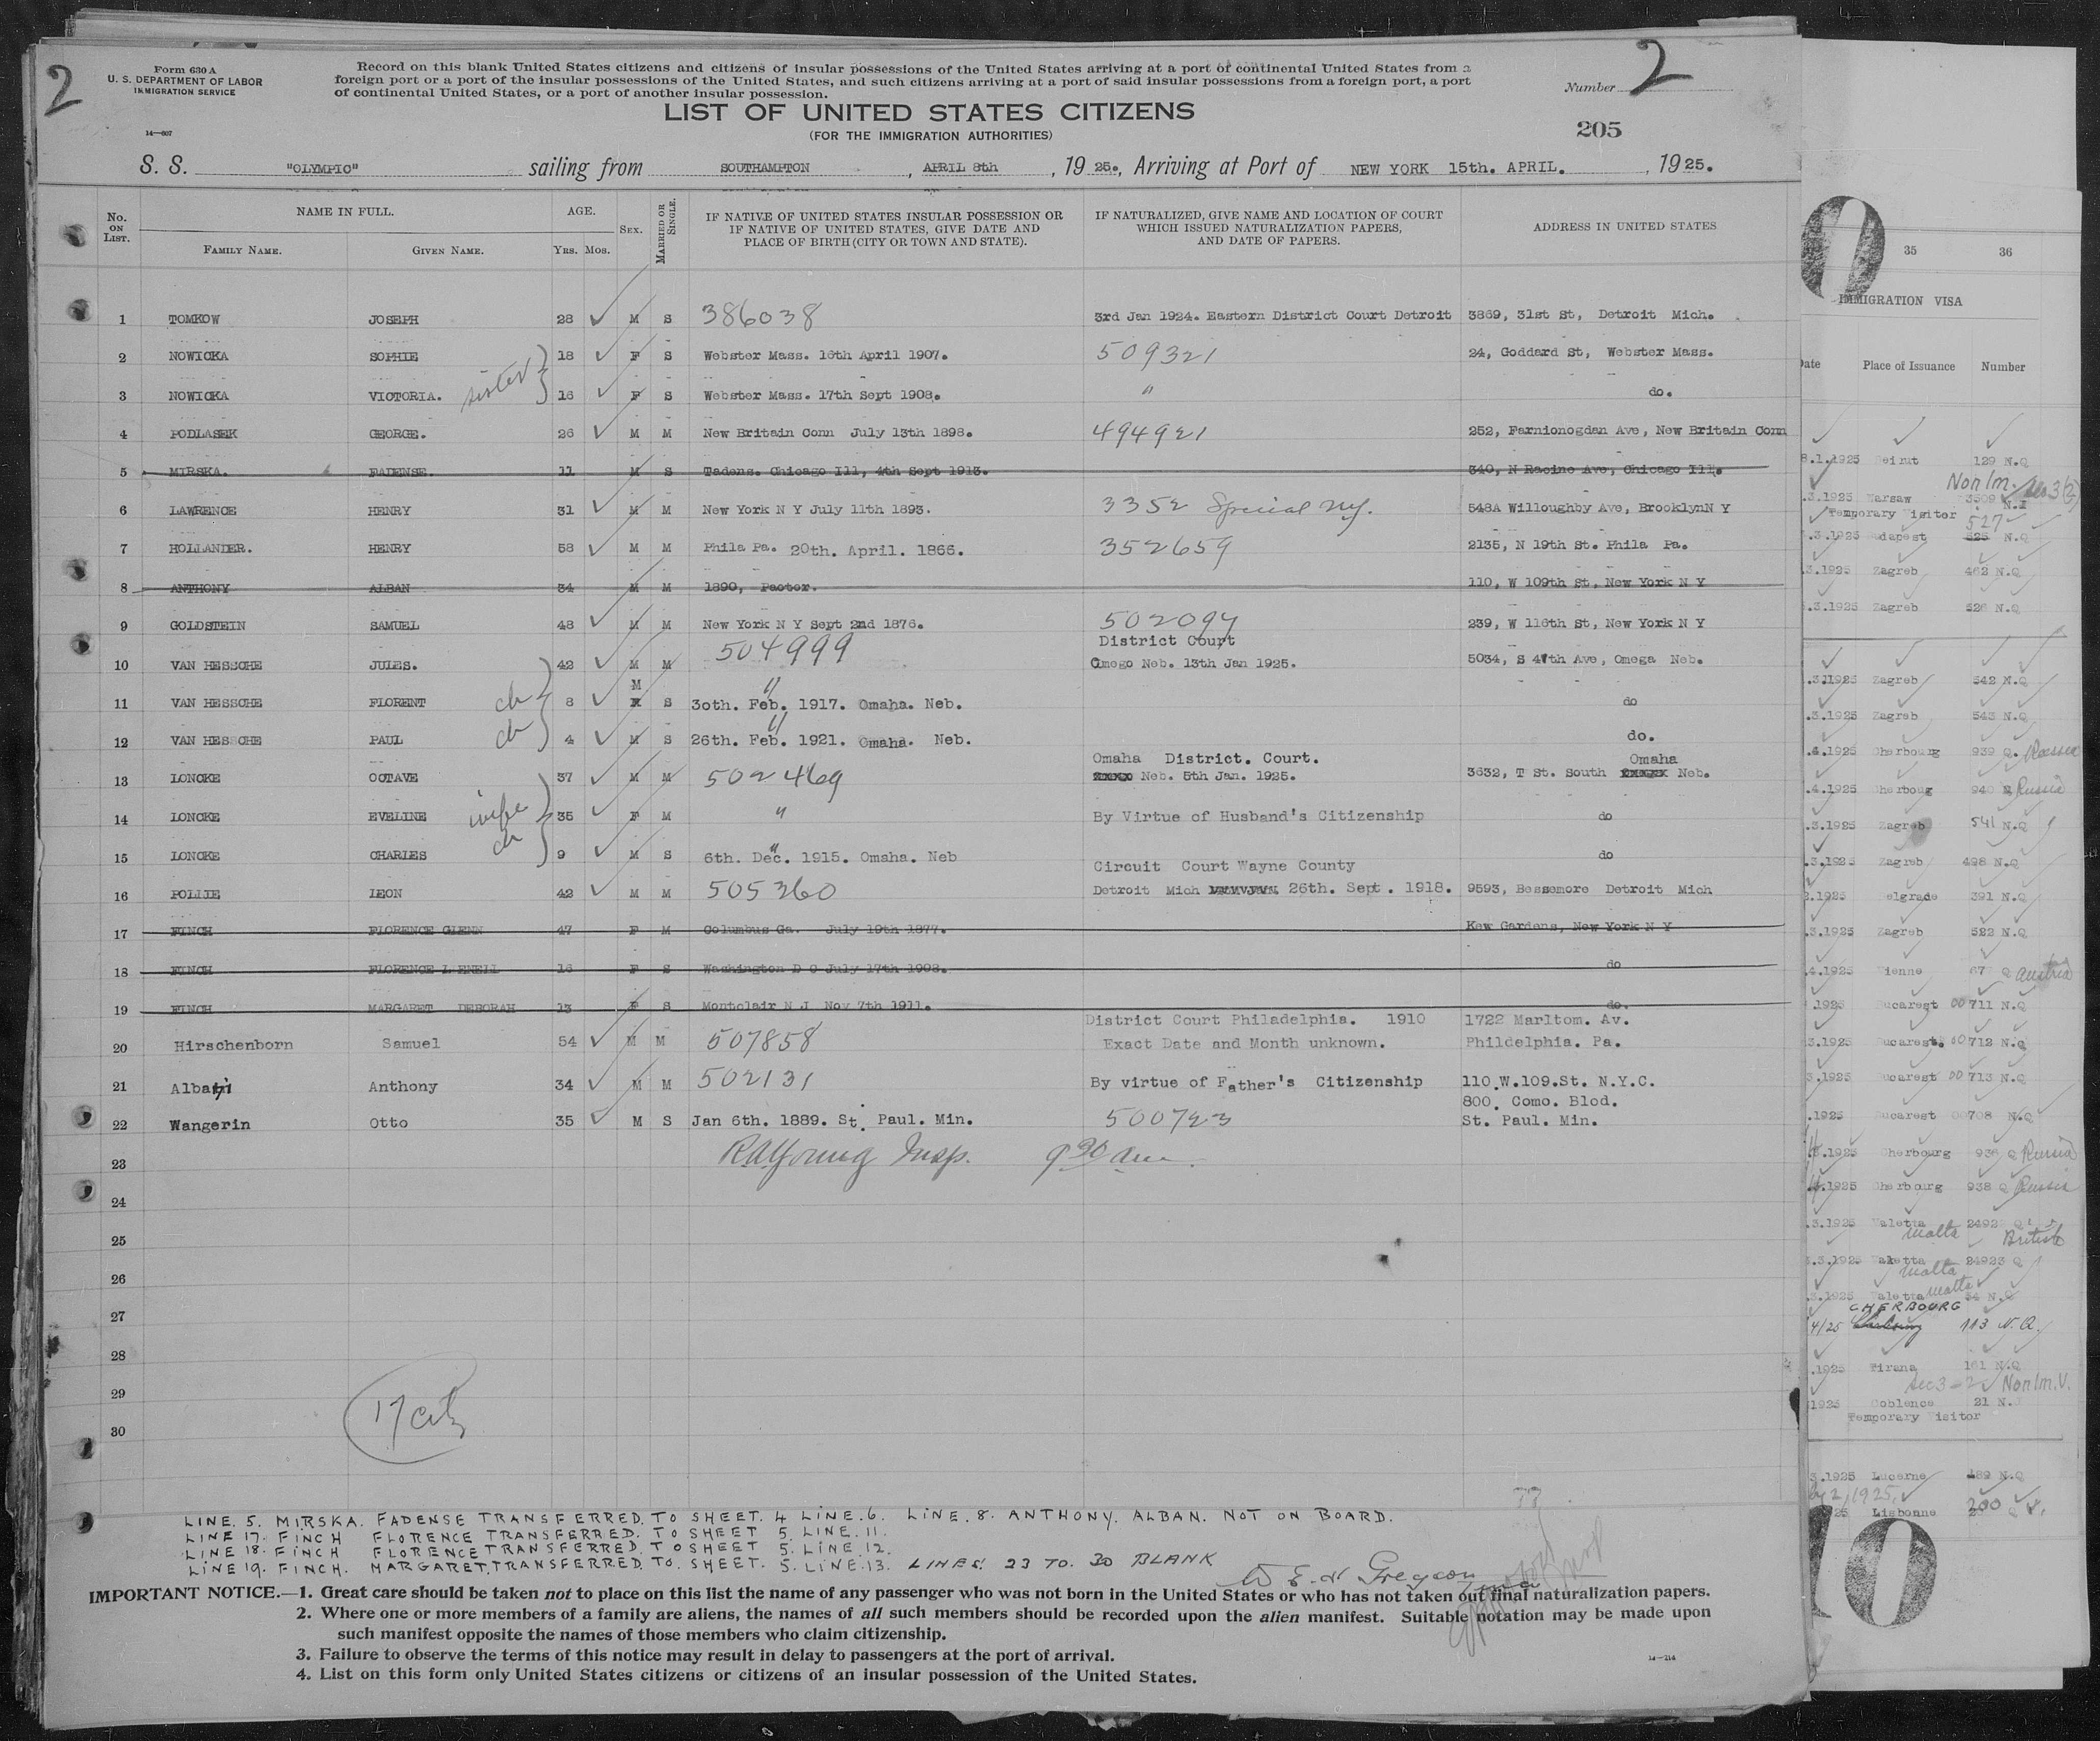 2
Form 630 A
U. S. DEPARTMENT OF LABOR
IMMIGRATION SERVICE
14—607
Record on this blank United States citizens and citizens of insular possessions of the United States arriving at a port of continental United States from a
foreign port or a port of the insular possessions of the United States, and such citizens arriving at a port of said insular possessions from a foreign port, a port
of continental United States, or a port of another insular possession.
Number 2
LIST OF UNITED STATES CITIZENS
(FOR THE IMMIGRATION AUTHORITIES)
205
S. S. "OLYMPIC" sailing from SOUTHAMPTON , APRIL 8th , 19 25., Arriving at Port of NEW YORK 15th. APRIL. , 19 25.
No. ON LIST. NAME IN FULL. FAMILY NAME. GIVEN NAME. AGE. YRS. MOS. SEX. MARRIED OR SINGLE. IF NATIVE OF UNITED STATES INSULAR POSSESSION OR IF NATIVE OF UNITED STATES, GIVE DATE AND PLACE OF BIRTH (CITY OR TOWN AND STATE). IF NATURALIZED, GIVE NAME AND LOCATION OF COURT WHICH ISSUED NATURALIZATION PAPERS, AND DATE OF PAPERS. ADDRESS IN UNITED STATES
1 TOMKOW JOSEPH 28 M S 386038 3rd Jan 1924. Eastern District Court Detroit 3869, 31st St, Detroit Mich.
2 NOWICKA SOPHIE 18 F S Webster Mass. 16th April 1907. 509321 24, Goddard St, Webster Mass.
3 NOWICKA VICTORIA. sister 16 F S Webster Mass. 17th Sept 1908. " do.
4 PODLASEK GEORGE. 26 M M New Britain Conn July 13th 1898. 494921 252, Farnionogdan Ave, New Britain Conn
5 MIRSKA. FADENSE. 11 M S Tadens. Chicago Ill, 4th Sept 1913. 340, N Racine Ave, Chicago Ill.
6 LAWRENCE HENRY 31 M M New York N Y July 11th 1893. 3352 Special N.Y. 548A Willoughby Ave, BrooklynN Y
7 HOLLANDER. HENRY 58 M M Phila Pa. 20th. April. 1866. 352659 2135, N 19th St. Phila Pa.
8 ANTHONY ALBAN 34 M M 1890, Pastor. 110, W 109th St, New York N Y
9 GOLDSTEIN SAMUEL 48 M M New York N Y Sept 2nd 1876. 502094 239, W 116th St, New York N Y
District Court
10 VAN HESSCHE JULES. 42 M M 504999 Omego Neb. 13th Jan 1925. 5034, S 47th Ave, Omega Neb.
M
11 VAN HESSCHE FLORENT ch 8 S " 30th. Feb. 1917. Omaha. Neb. do
12 VAN HESSCHE PAUL ch 4 M S " 26th. Feb. 1921. Omaha. Neb. do.
Omaha District. Court. Omaha
13 LONCKE OCTAVE 37 M M 502469 Neb. 5th Jan. 1925. 3632, T St. South Neb.
14 LONCKE EVELINE wife 35 F M " By Virtue of Husband's Citizenship do
15 LONCKE CHARLES ch 9 M S " 6th. Dec. 1915. Omaha. Neb do
Circuit Court Wayne County
16 POLLIE LEON 42 M M 505360 Detroit Mich 26th. Sept. 1918. 9593, Bessemore Detroit Mich
17 FINCH FLORENCE GLENN 47 F M Columbus Ga. July 19th 1877. Kew Gardens, New York N Y
18 FINCH FLORENCE LENELL 16 F S Washington D C July 17th 1908. do
19 FINCH MARGARET DEBORAH 13 F S Montclair N J Nov 7th 1911. do.
District Court Philadelphia. 1910 1722 Marltom. Av.
20 Hirschenborn Samuel 54 M M 507858 Exact Date and Month unknown. Phildelphia. Pa.
21 Albani Anthony 34 M M 502131 By virtue of Father's Citizenship 110.W.109.St. N.Y.C.
800. Como. Blod.
22 Wangerin Otto 35 M S Jan 6th. 1889. St. Paul. Min. 500723 St. Paul. Min.
23 RA Young Insp. 9 30 am.
24
25
26
27
28
29
30
17 cit
77
LINE. 5. MIRSKA. FADENSE TRANSFERRED. TO SHEET. 4 LINE. 6. LINE. 8. ANTHONY. ALBAN. NOT ON BOARD.
LINE 17. FINCH FLORENCE TRANSFERRED. TO SHEET 5. LINE. 11.
LINE 18. FINCH FLORENCE TRANSFERRED. TO SHEET 5. LINE. 12.
LINE 19. FINCH. MARGARET. TRANSFERRED TO. SHEET. 5. LINE. 13. LINES. 23 TO. 30 BLANK
IMPORTANT NOTICE.—1. Great care should be taken not to place on this list the name of any passenger who was not born in the United States or who has not taken out final naturalization papers.
2. Where one or more members of a family are aliens, the names of all such members should be recorded upon the alien manifest. Suitable notation may be made upon
such manifest opposite the names of those members who claim citizenship.
3. Failure to observe the terms of this notice may result in delay to passengers at the port of arrival.
4. List on this form only United States citizens or citizens of an insular possession of the United States.
14—214
35 36
IMMIGRATION VISA
Date Place of Issuance Number
8.1.1925 Beirut 129 N.Q
Non Im. Sec 3(2)
.3.1925 Warsaw 3509 N.I
Temporary Visitor 527
.3.1925 Budapest 525 N.Q
.3.1925 Zagreb 462 N.Q
.3.1925 Zagreb 526 N.Q
.3.1925 Zagreb 542 N.Q
.3.1925 Zagreb 543 N.Q
.4.1925 Cherbourg 939 Q. Russia
.4.1925 Cherboug 940 Q Russia
.3.1925 Zagreb 541 N.Q
.3.1925 Zagreb 498 N.Q
2.1925 Belgrade 391 N.Q
.3.1925 Zagreb 522 N.Q
.4.1925 Vienne 67 Q Austria
.1925 Bucarest 00711 N.Q
3.1925 Bucarest. 00712 N.Q
3.1925 Bucarest 00713 N.Q
.1925 Bucarest 00708 N.Q
.1925 Cherbourg 936 Q Russia
.1925 Cherbourg 938 Q Russia
.3.1925 Valetta 2492 Q
Malta British
.3.1925 Valetta 24923 Q
Malta
.3.1925 Valetta Malta 54 N.Q
CHERBOURG
4/25 113 N.Q.
.1925 Tirana 161 N.Q
Sec 3-2 Non Im. V.
1925 Coblence 21 N.
Temporary Visitor
3.1925 Lucerne 489 N.Q
2/1925
25 Lisbonne 200 Q
10